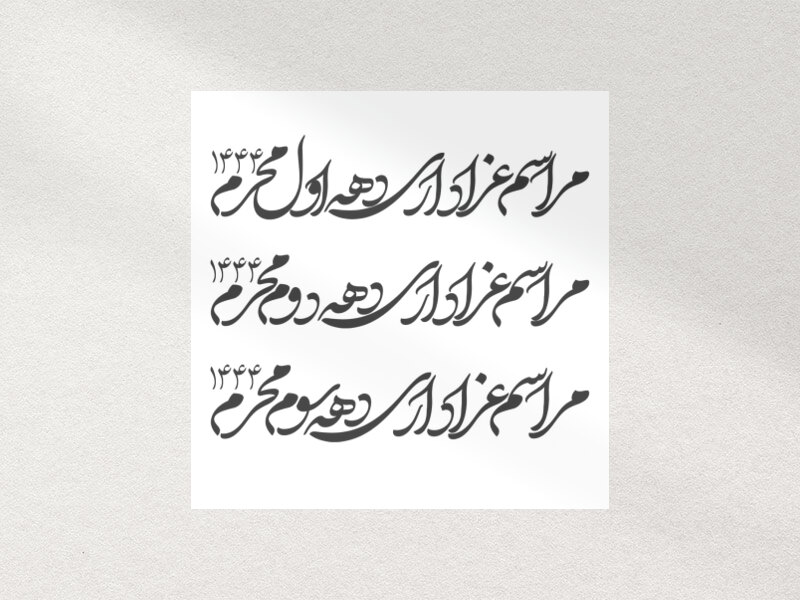 مراسم عزاداری دهه اول محرم ۱۴۴۴
مراسم عزاداری دهه دوم محرم ۱۴۴۴
مراسم عزاداری دهه سوم محرم ۱۴۴۴